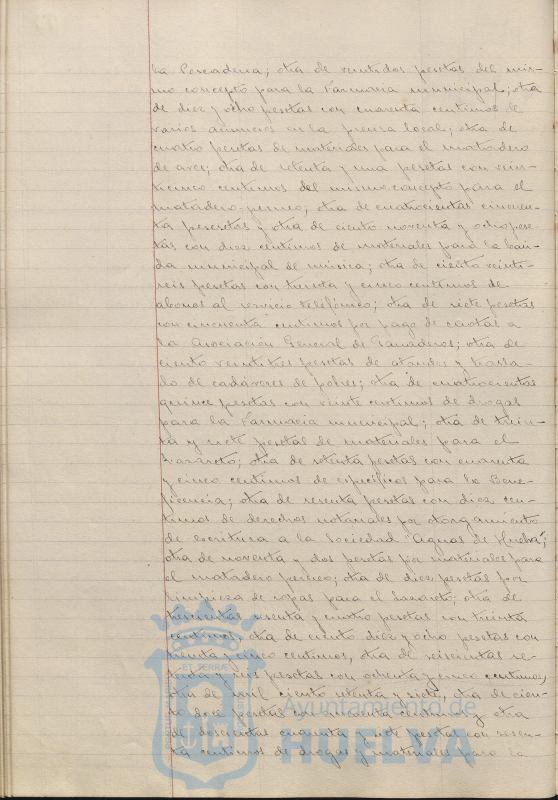 la Pescadería; otra de veintidos pesetas del mis-
mo concepto para la Farmacia municipal; otra
de diez y ocho pesetas con cuarenta centimos de
varios anuncios en la prensa local; otra de
cuatro pesetas de materiales para el matadero
de aves; otra de setenta y una pesetas con vein-
ticinco centimos del mismo concepto para el
matadero; otra de cuatrocientas cincuen-
ta pesetas y otra de ciento noventa y ocho pese-
tas con diez centimos de materiales para la ban-
da municipal de música; otra de ciento veinti-
seis pesetas con treinta y cinco centimos de
abonos al servicio telefónico; otra de siete pesetas
con cincuenta centimos por pago de cuotas a
la Asociación General de Ganaderos; otra de
ciento veintitres pesetas de ataudes y trasla-
do de cadáveres de pobres; otra de cuatrocientas
quince pesetas con veinte centimos de drogas
para la Farmacia municipal; otra de trein-
ta y siete pesetas de materiales para el
Lazareto; otra de setenta pesetas con cuarenta
y cinco centimos de específicos para la Bene-
ficencia; otra de sesenta pesetas con diez cen-
timos de derechos notariales por otorgamiento
de escritura a la Sociedad "Aguas de Huelva";
otra de noventa y dos pesetas por materiales para
el matadero; otra de diez pesetas por
limpieza de ropas para el Lazareto; otra de
trescientas sesenta y cuatro pesetas con treinta
centimos, otra de ciento diez y ocho pesetas con
y cinco centimos, otra de seiscientas se-
tenta y seis pesetas con ochenta y cinco centimos,
otra de mil ciento setenta y siete, otra de cien-
to doce pesetas con cincuenta centimos y otra
de doscientas cuarenta y siete pesetas con sesen-
ta centimos de drogas y materiales para la
ET TERRÆ
Ayuntamiento de
HUELVA